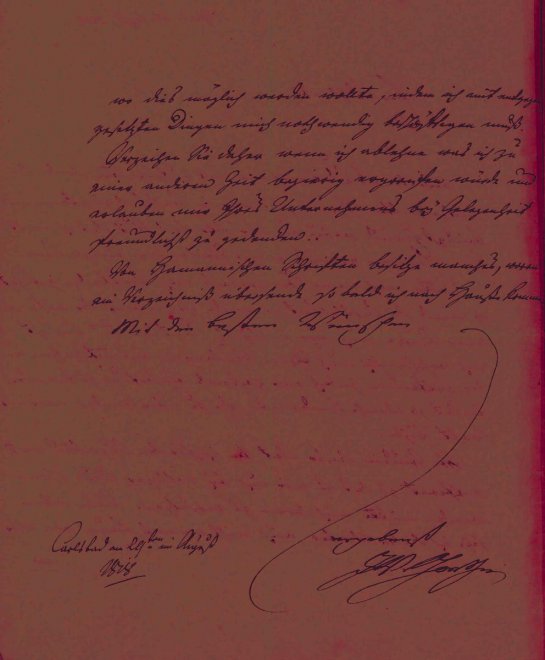 wo dies möglich werden wollte, indem ich mit entgegen
gesetzten Dingen mich nothwendig beschäftigen muß.
Verzeihen Sie daher wenn ich ablehne was ich zu
einer anderen Zeit begierig ergreifen würde und
erlauben mir Ihres Unternehmens bey Gelegenheit
freundlichst zu gedencken.
Von Hamannischen Schriften besitze manches, wovon
ein Verzeichniß übersende so bald ich nach Hause komme
Mit den besten Wünschen
ergebenst
Carlsbad am ten im August
JWvGoethe
1818